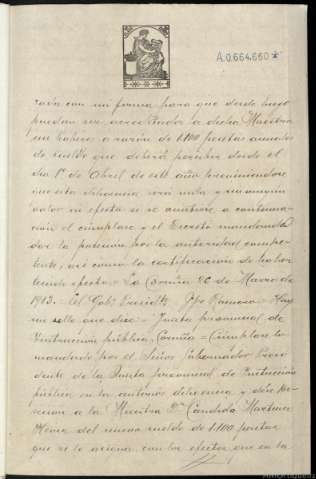 A.0.664.660*
rará con mi firma para que desde luego
puedan ser acreditados a dicha Maestra
sus haberes a razón de 1.100 pesetas anuales
de sueldo que deberá percibir desde el
día 1º de Abril de este año previniéndose
que esta diligencia será nula y sin ningún
valor ni efecto si se omitiere a continua-
ción el cúmplase y el Decreto mandando
dar la posesión por la autoridad compe-
tente, así como la certificación de haber
tenido efecto. La Coruña 26 de Marzo de
1913. El Gobr Presidte Romero Hay
un sello que dice Junta provincial de
Instrucción pública Coruña = Cúmplase lo
mandado por el Señor Gobernador Presi
dente de la Junta provincial de Instrucción
pública en la anterior diligencia y dése po-
sesión a la Maestra Dª Cándida Martínez
del nuevo sueldo de 1.100 pesetas
que se le asigna con los efectos que en la